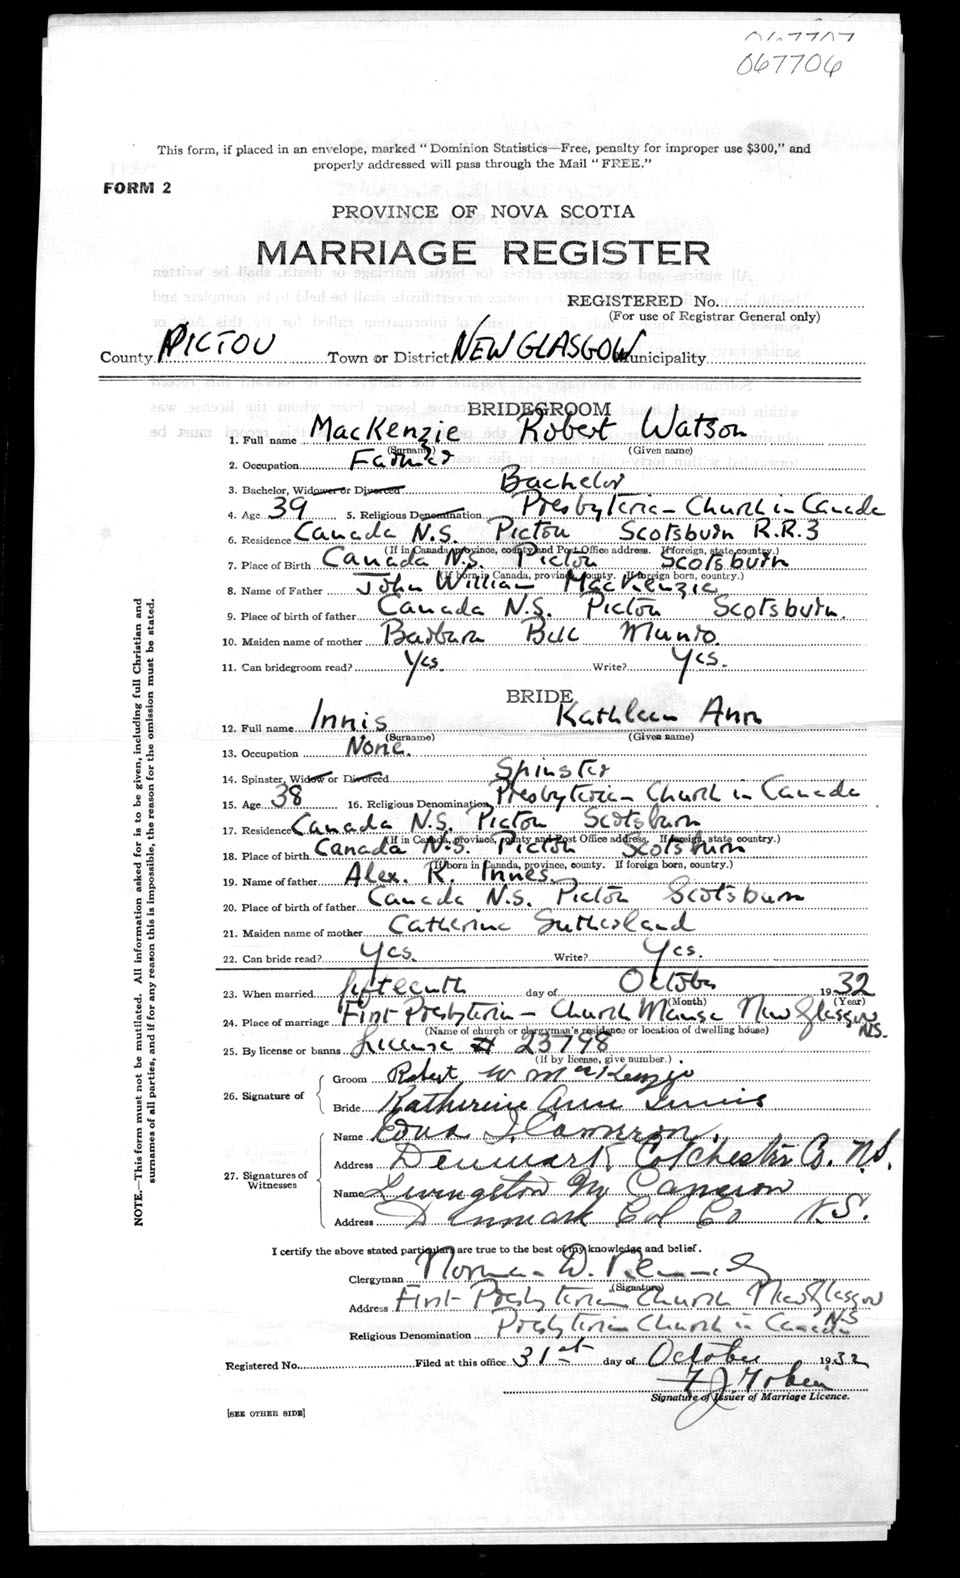 067707
067706
This form, if placed in an envelope, marked " Dominion Statistics—Free, penalty for improper use $300," and
properly addressed will pass through the Mail " FREE."
FORM 2
PROVINCE OF NOVA SCOTIA
MARRIAGE REGISTER
REGISTERED No.
(For use of Registrar General only)
County PICTOU Town or District NEW GLASGOW Municipality
BRIDEGROOM
1. Full name MacKenzie Robert Watson
(Surname) (Given name)
2. Occupation Farmer
3. Bachelor, Widower or Divorced Bachelor
4. Age 39 5. Religious Denomination Presbyterian Church in Canada
6. Residence Canada N.S. Pictou Scotsburn R.R.3
(If in Canada province, county and Post Office address. If foreign, state country.)
7. Place of Birth Canada N.S. Pictou Scotsburn
(If born in Canada, province, county. If foreign born, country.)
8. Name of Father John William MacKenzie
9. Place of birth of father Canada N.S. Pictou Scotsburn.
10. Maiden name of mother Barbara Bell Munro
11. Can bridegroom read? Yes. Write? Yes.
BRIDE
12. Full name Innis Kathleen Ann
(Surname) (Given name)
13. Occupation None.
14. Spinster, Widow or Divorced Spinster
15. Age 38 16. Religious Denomination Presbyterian Church in Canada
17. Residence Canada N.S. Pictou Scotsburn
(If in Canada, province, county and Post Office address. If foreign, state country.)
18. Place of birth Canada N.S. Pictou Scotsburn
(If born in Canada, province, county. If foreign born, country.)
19. Name of father Alex. R. Innes.
20. Place of birth of father Canada N.S. Pictou Scotsburn
21. Maiden name of mother Catherine Sutherland
22. Can bride read? Yes. Write? Yes.
23. When married fifteenth day of October 1932
(Month) (Year)
24. Place of marriage First Presbyterian Church Manse New Glasgow N.S.
(Name of church or clergyman's residence or location of dwelling house)
25. By license or banns License # 23798
(If by license, give number.)
26. Signature of
Groom Robert W MacKenzie
Bride Katherine Ann Innis
27. Signatures of Witnesses
Name Edna J. Cameron.
Address Denmark Colchester Co. N.S.
Name Livingston M Cameron
Address Denmark Col Co N.S.
I certify the above stated particulars are true to the best of my knowledge and belief.
Clergyman Norman D. Kennedy
(Signature)
Address First Presbyterian Church New Glasgow N.S
Religious Denomination Presbyterian Church in Canada
Registered No. Filed at this office 31st day of October 1932
Signature of Issuer of Marriage Licence.
[SEE OTHER SIDE]
NOTE.—This form must not be mutilated. All information asked for is to be given, including full Christian and
surnames of all parties, and if for any reason this is impossible, the reason for the omission must be stated.